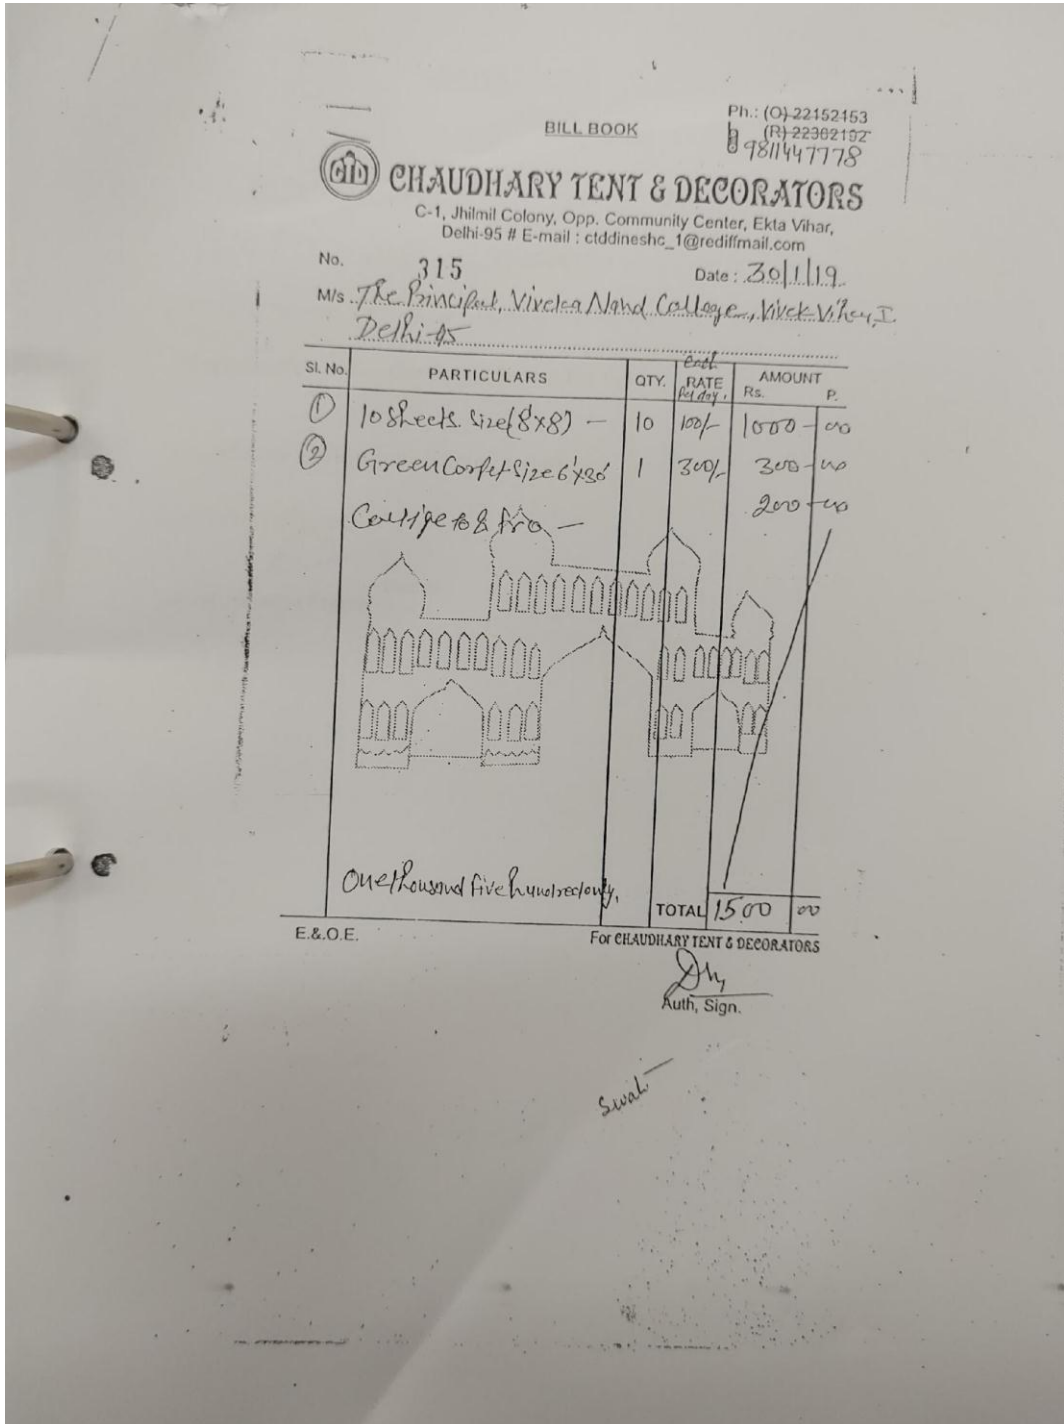 BILL BOOK
Ph.: (O) 22152153
(R) 22302192
9811447778
CTD
CHAUDHARY TENT & DECORATORS
C-1, Jhilmil Colony, Opp. Community Center, Ekta Vihar,
Delhi-95 # E-mail : ctddineshc_1@rediffmail.com
No. 315
Date : 30/1/19
M/s. The Principal, Viveka Nand College, Vivek Vihar, I
Delhi-95
Sl. No. PARTICULARS QTY. each RATE Per day. AMOUNT Rs. P.
1 10 Sheets. Size (8'x8') - 10 100/- 1000 - 00
2 Green Carpet Size 6'x30' 1 300/- 300 - 00
Cartige to & fro - 200 - 00
One thousand five hundred only.
TOTAL 1500 00
E.&.O.E.
For CHAUDHARY TENT & DECORATORS
Auth, Sign.
Swati